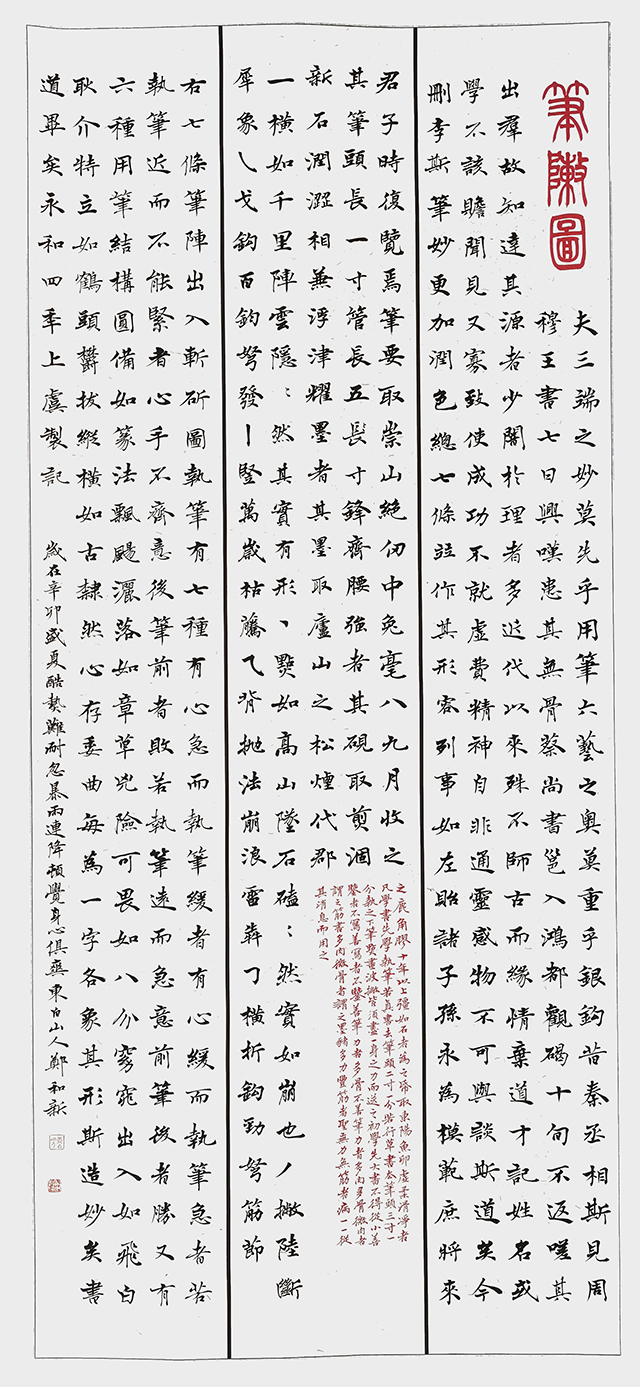 筆敶圖
夫三端之妙莫先乎用筆六藝之奧莫重乎銀鉤昔秦丞相斯見周
穆王書七日興嘆患其無骨蔡尚書邕入鴻都觀碣十旬不返嗟其
出羣故知達其源者少闇於理者多近代以來殊不師古而緣情棄道才記姓名或
學不該贍聞見又寡致使成功不就虛費精神自非通靈感物不可與談斯道矣今
刪李斯筆妙更加潤色總七條並作其形容列事如左貽諸子孫永為模範庶將來
君子時復覽焉筆要取崇山絕仞中兔毫八九月收之
其筆頭長一寸管長五長寸鋒齊腰強者其硯取煎涸
新石潤澀相兼浮津耀墨者其墨取廬山之松煙代郡
之鹿角膠十年以上強如石者為之紙取東陽魚卵虛柔滑淨者
凡學書先學執筆若真書去筆頭二寸一分若行草書去筆頭三寸一
分執之下筆點畫波撇皆須盡一身之力而送之初學先大書不得從小善
鑒者不寫善寫者不鑒善筆力者多骨不善筆力者多肉多骨微肉者
謂之筋書多肉微骨者謂之墨豬多力豐筋者聖無力無筋者病一一從
其消息而用之
一橫如千里陣雲隱:然其實有形丶點如高山墜石磕:然實如崩也丿撇陸斷
犀象㇂戈鉤百鈞弩發丨豎萬歲枯藤乁背拋法崩浪雷奔𠃌橫折鉤勁弩筋節
右七條筆陣出入斬斫圖執筆有七種有心急而執筆緩者有心緩而執筆急者若
執筆近而不能緊者心手不齊意後筆前者敗若執筆遠而急意前筆後者勝又有
六種用筆結構圓備如篆法飄颺灑落如章草兇險可畏如八分窈窕出入如飛白
耿介特立如鶴頭鬱拔縱橫如古隸然心存委曲每為一字各象其形斯造妙矣書
道畢矣永和四年上虞製記
歲在辛卯盛夏酷熱難耐忽暴雨連降頓覺身心俱爽東白山人鄭和新